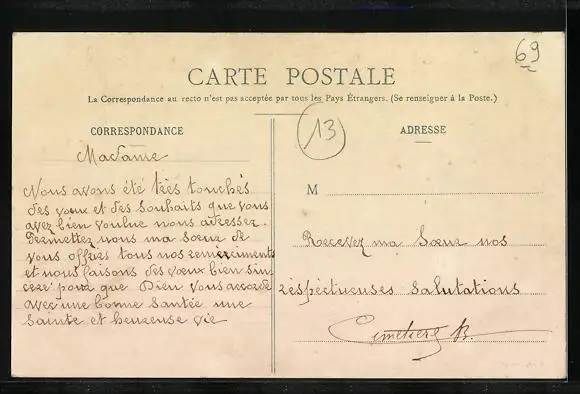 69
CARTE POSTALE
La Correspondance au recto n'est pas acceptée par tous les Pays Étrangers. (Se renseigner à la Poste.)
CORRESPONDANCE
13
ADRESSE
Madame
Nous avons été très touchés
des vœux et des souhaits que vous
avez bien voulue nous adresser.
Permettez nous ma Sœur de
vous offrir tous nos remerciements
et nous faisons des vœux bien sin
cère pour que Dieu vous accorde
avec une bonne santée une
sainte et heureuse vie
M
Recevez ma Sœur nos
respectueuses salutations
B.